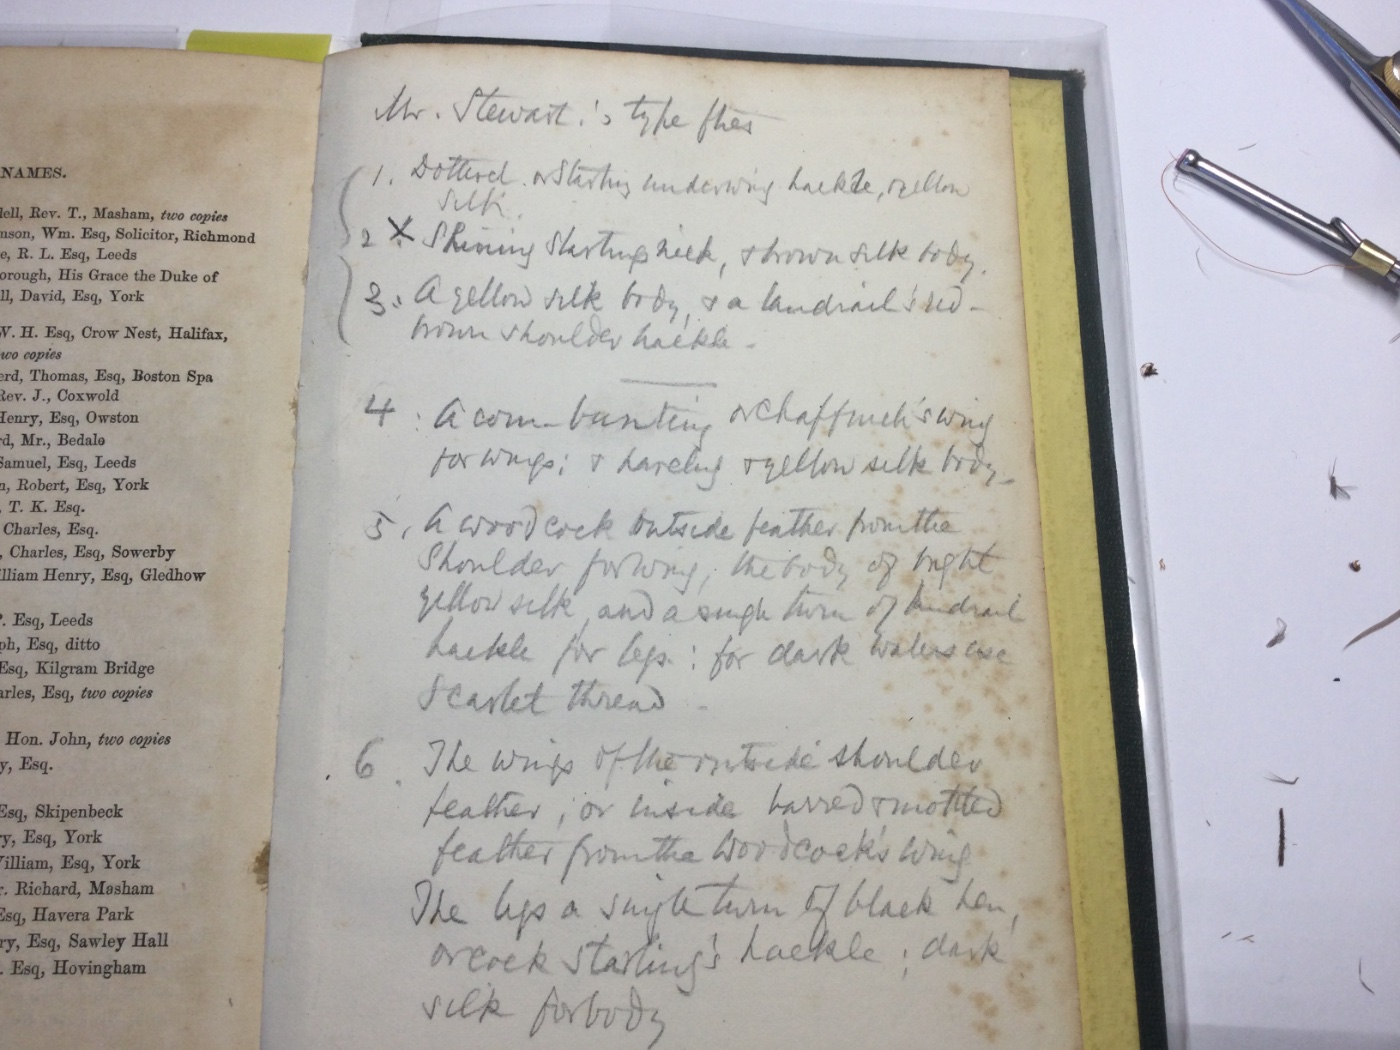 NAMES.
dell, Rev. T., Masham, two copies
nson, Wm. Esq, Solicitor, Richmond
e, R. L. Esq, Leeds
orough, His Grace the Duke of
ll, David, Esq, York
W. H. Esq, Crow Nest, Halifax,
two copies
erd, Thomas, Esq, Boston Spa
Rev. J., Coxwold
Henry, Esq, Owston
rd, Mr., Bedale
Samuel, Esq, Leeds
n, Robert, Esq, York
, T. K. Esq.
Charles, Esq.
, Charles, Esq, Sowerby
illiam Henry, Esq, Gledhow
P. Esq, Leeds
ph, Esq, ditto
Esq, Kilgram Bridge
arles, Esq, two copies
Hon. John, two copies
y, Esq.
Esq, Skipenbeck
ry, Esq, York
William, Esq, York
r. Richard, Masham
Esq, Havera Park
ry, Esq, Sawley Hall
. Esq, Hovingham
Mr. Stewart's type flies
1. Dotterel or Starling underwing hackle, yellow
silk.
2 X. Shining Starling neck, & brown silk body.
3. A yellow silk body, & a landrail's red-
brown shoulder hackle.
4. A corn-bunting or chaffinch's wing
for wings; & harelug & yellow silk body.
5. A woodcock outside feather from the
shoulder for wing; the body of bright
yellow silk, and a single turn of landrail
hackle for legs: for dark waters use
Scarlet thread.
6. The wings of the outside shoulder
feather, or inside barred & mottled
feather from the Woodcock's wing
The legs a single turn of black hen,
or cock starling's hackle; dark
silk for body